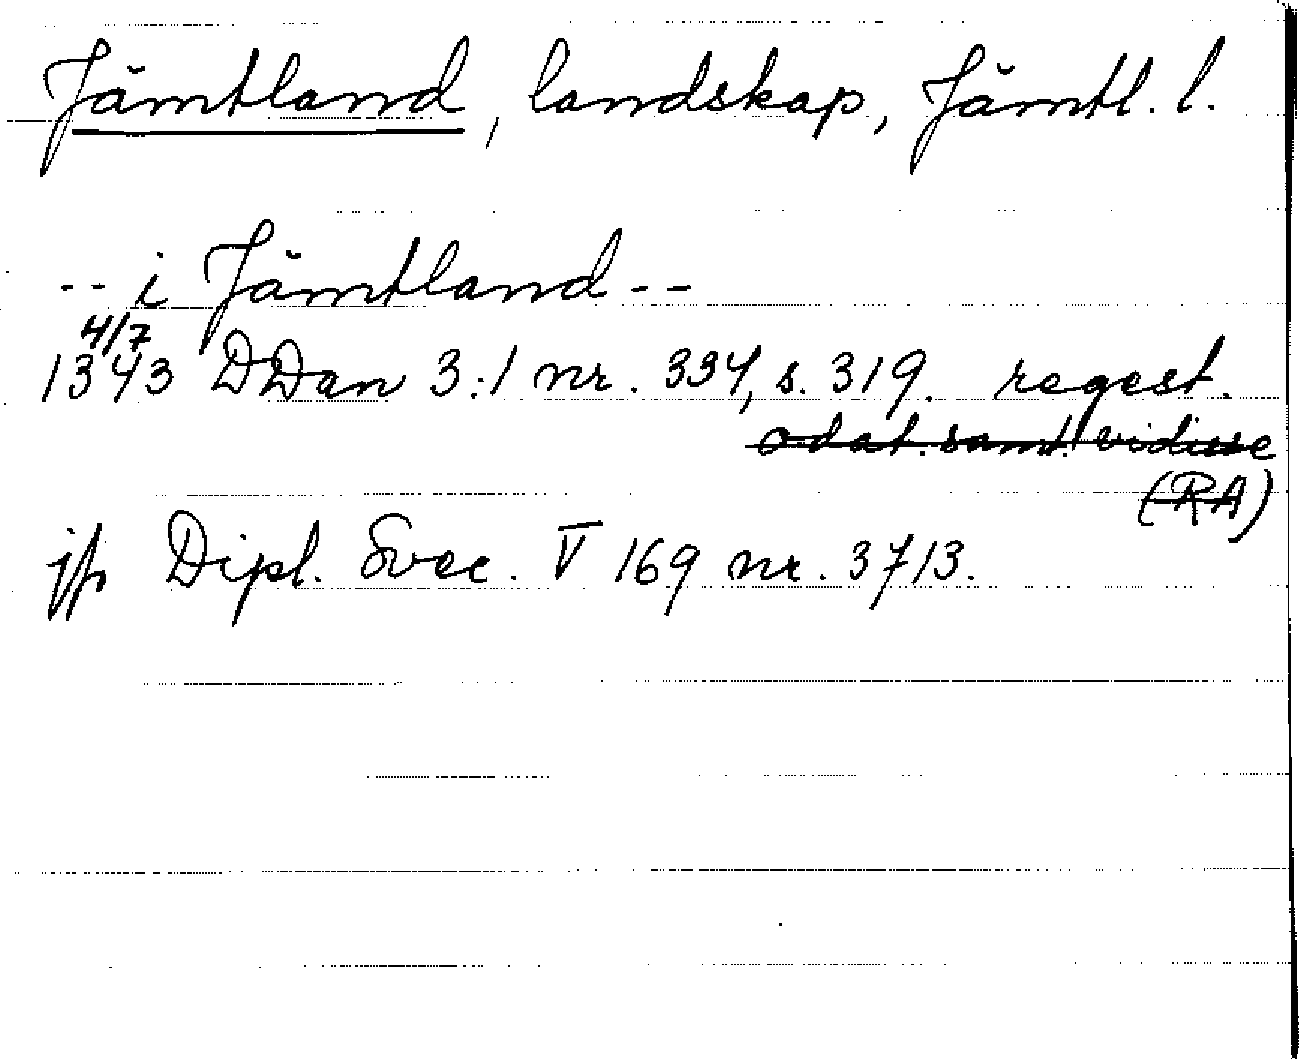 Jämtland, landskap, Jämtl. l.
-- i Jämtland --
4/7
1343 DDan 3:1 nr. 334, s. 319. regest.
odat. samt. vidisse
(RA)
jfr Dipl. Svec. V 169 nr. 3713.